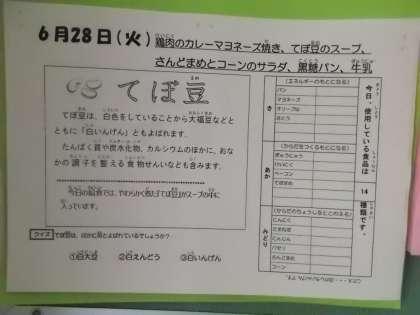 6月28日(火) 鶏肉のカレーマヨネーズ焼き、てぼ豆のスープ、
さんどまめとコーンのサラダ、黒糖パン、牛乳
てぼ豆
てぼ豆は、白色をしていることから大福豆などと
ともに「白いんげん」ともよばれます。
たんぱく質や炭水化物、カルシウムのほかに、おな
かの調子を整える食物せんいなども含みます。
今日の給食では、やわらかく煮たてぼ豆がスープの中に
入っています。
クイズ てぼ豆は、ほかに何とよばれているでしょうか?
①白大豆 ②白えんどう ③白いんげん
今日、使用している食品は
14
種類です。
き
(エネルギーのもとになる)
パン
マヨネーズ
オリーブ油
さとう
あか
(からだをつくるもとになる)
ぎゅうにゅう
とりにく
ベーコン
てぼまめ
みどり
(からだのちょうしをととのえる)
にんにく
たまねぎ
にんじん
パセリ
さんどまめ
コーン